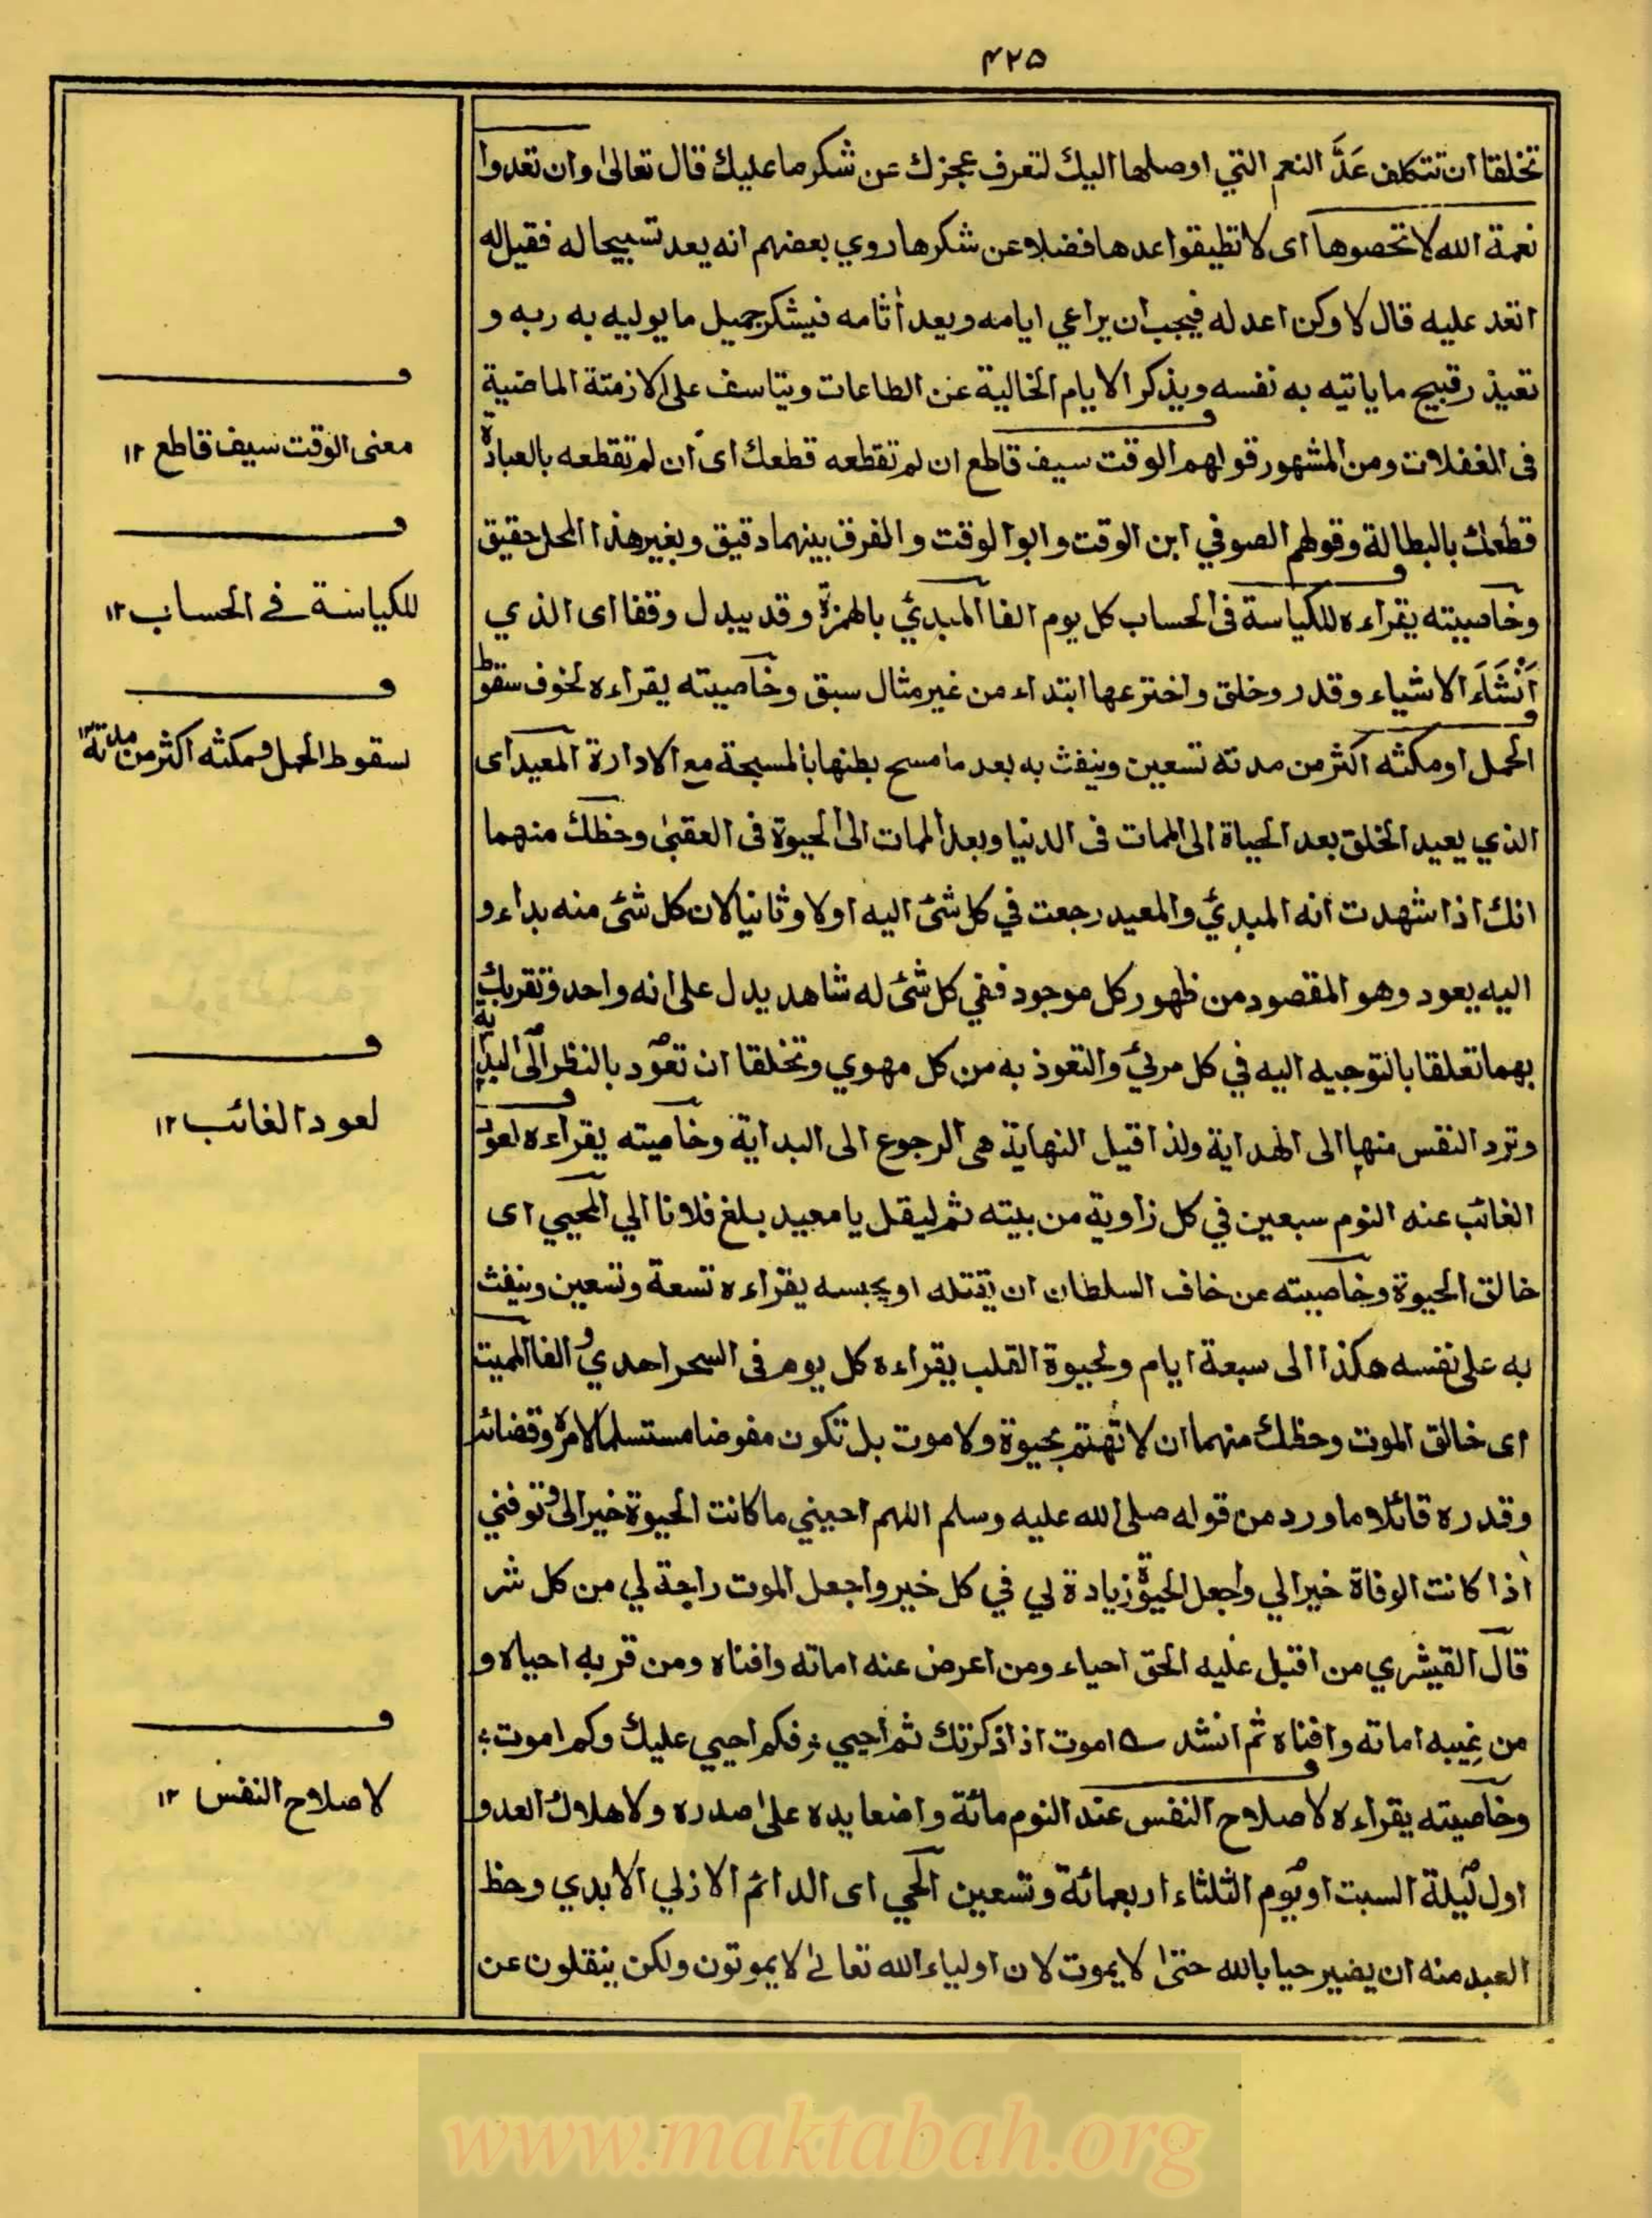 ٤٢٥
تخلقا ان تتكلف عَدَّ النعم التي اوصلها اليك لتعرف عجزك عن شكر ما عليك قال تعالى وان تعدوا
نعمة الله لا تحصوها اى لا تطيقوا عدها فضلا عن شكرها روي بعضهم انه يعد تسبيحا له فقيل له
اتعد عليه قال لا وكن اعد له فيجب ان يراعي ايامه ويعد أثامه فيشكر جميل ما يوليه به ربه و
تعيذر قبيح ما ياتيه به نفسه ويذكر الايام الخالية عن الطاعات ويتاسف على الازمتة الماضية
فى الغفلات ومن المشهور قولهم الوقت سيف قاطع ان لم تقطعه قطعك اى ان لم تقطعه بالعبادة
قطعك بالبطالة وقولهم الصوفي ابن الوقت وابو الوقت والفرق بينهما دقيق وبغير هذا المحل حقيق
وخاصيته يقراءه للكياسة فى الحساب كل يوم الفا المبدئ بالهمزة وقد يبدل وقفا اى الذي
أَنْشَاَ الاشياء وقدر وخلق واخترعها ابتداء من غير مثال سبق وخاصيته يقراءه لخوف سقوط
الحمل او مكثه اكثر من مدته تسعين وينفث به بعد ما مسح بطنها بالمسبحة مع الادارة المعيد اى
الذي يعيد الخلق بعد الحياة الى الممات فى الدنيا وبعد الممات الى الحيوة فى العقبى وحظك منهما
انك اذا شهدت انه المبدئ والمعيد رجعت في كل شئ اليه اولا وثانيا لان كل شئ منه بداء و
اليه يعود وهو المقصود من ظهور كل موجود ففي كل شئ له شاهد يدل على انه واحد وتقربك
بهما تعلقا بالتوجيه اليه في كل مرئ والتعوذ به من كل مهوي وتخلقا ان تعود بالنظر الى البداية
وترد النفس منها الى الهداية ولذا قيل النهاية هى الرجوع الى البداية وخاصيته يقراءه لعود
الغائب عنه النوم سبعين في كل زاوية من بيته ثم ليقل يا معيد بلغ فلانا الي المحيي اى
خالق الحيوة وخاصيته من خاف السلطان ان يقتله او يحبسه يقراءه تسعة وتسعين وينفث
به على نفسه هكذا الى سبعة ايام ولحيوة القلب يقراءه كل يوم فى السحر احدي والفا المميت
اى خالق الموت وحظك منهما ان لا تهتم بحيوة ولا موت بل تكون مفوضا مستسلما لامره وقضائه
وقدره قائلا ما ورد من قوله صلى الله عليه وسلم اللهم احييني ما كانت الحيوة خيرا لى وتوفني
اذا كانت الوفاة خيرا لي واجعل الحيوة زيادة لي في كل خير واجعل الموت راحة لي من كل شر
قال القيشري من اقبل عليه الحق احياء ومن اعرض عنه اماته وافناه ومن قربه احياه و
من غيبه اماته وافناه ثم انشد اموت اذا ذكرتك ثم احيي فكم احيي عليك وكم اموت
وخاصيته يقراءه لاصلاح النفس عند النوم مائة واضعا يده على صدره ولاهلاك العدو
اول ليلة السبت او يوم الثلثاء اربعمائة وتسعين الحي اى الدائم الازلي الابدي وحظ
العبد منه ان يصير حيا بالله حتى لا يموت لان اولياء الله تعالى لا يموتون ولكن ينقلون عن
معنى الوقت سيف قاطع ١٢
للكياسة فے الحساب ١٢
سقوط الحمل ومكثه اكثر من مدته ١٢
لعود الغائب ١٢
لاصلاح النفس ١٢
www.maktabah.org